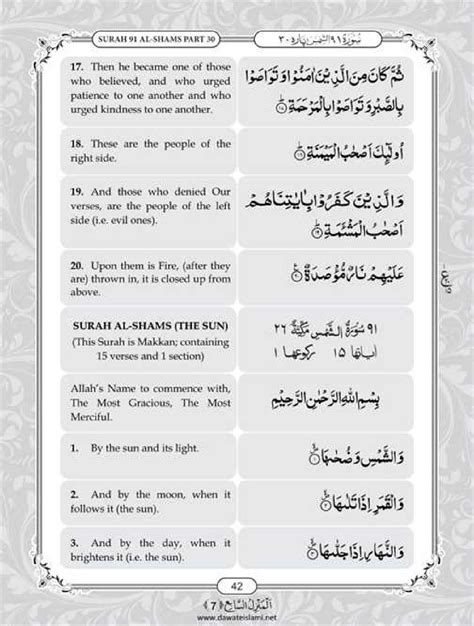 SURAH 91 AL-SHAMS PART 30
سُوْرَةُ ٩١ الشَّمْس پارہ ٣٠
17. Then he became one of those
who believed, and who urged
patience to one another and who
urged kindness to one another.
ثُمَّ كَانَ مِنَ الَّذِيْنَ اٰمَنُوْا وَ تَوَاصَوْا
بِالصَّبْرِ وَ تَوَاصَوْا بِالْمَرْحَمَةِ ﴿١٧﴾
18. These are the people of the
right side.
اُولٰٓىِٕكَ اَصْحٰبُ الْمَيْمَنَةِ ﴿١٨﴾
19. And those who denied Our
verses, are the people of the left
side (i.e. evil ones).
وَ الَّذِيْنَ كَفَرُوْا بِاٰيٰتِنَا هُمْ
اَصْحٰبُ الْمَشْـَٔمَةِ ﴿١٩﴾
20. Upon them is Fire, (after they
are) thrown in, it is closed up from
above.
عَلَيْهِمْ نَارٌ مُّؤْصَدَةٌ ﴿٢٠﴾
SURAH AL-SHAMS (THE SUN)
(This Surah is Makkan; containing
15 verses and 1 section)
٩١ سُوْرَةُ الشَّمْسِ مَكِّيَّةٌ ٢٦
اٰیاتها ١٥ رکوعها ١
Allah's Name to commence with,
The Most Gracious, The Most
Merciful.
بِسْمِ اللهِ الرَّحْمٰنِ الرَّحِيْمِ
1. By the sun and its light.
وَ الشَّمْسِ وَ ضُحٰىهَا ﴿١﴾
2. And by the moon, when it
follows it (the sun).
وَ الْقَمَرِ اِذَا تَلٰىهَا ﴿٢﴾
3. And by the day, when it
brightens it (i.e. the sun).
وَ النَّهَارِ اِذَا جَلّٰىهَا ﴿٣﴾
42
اَلْمَنْزِلُ السَّابِع ﴿7﴾
www.dawateislami.net